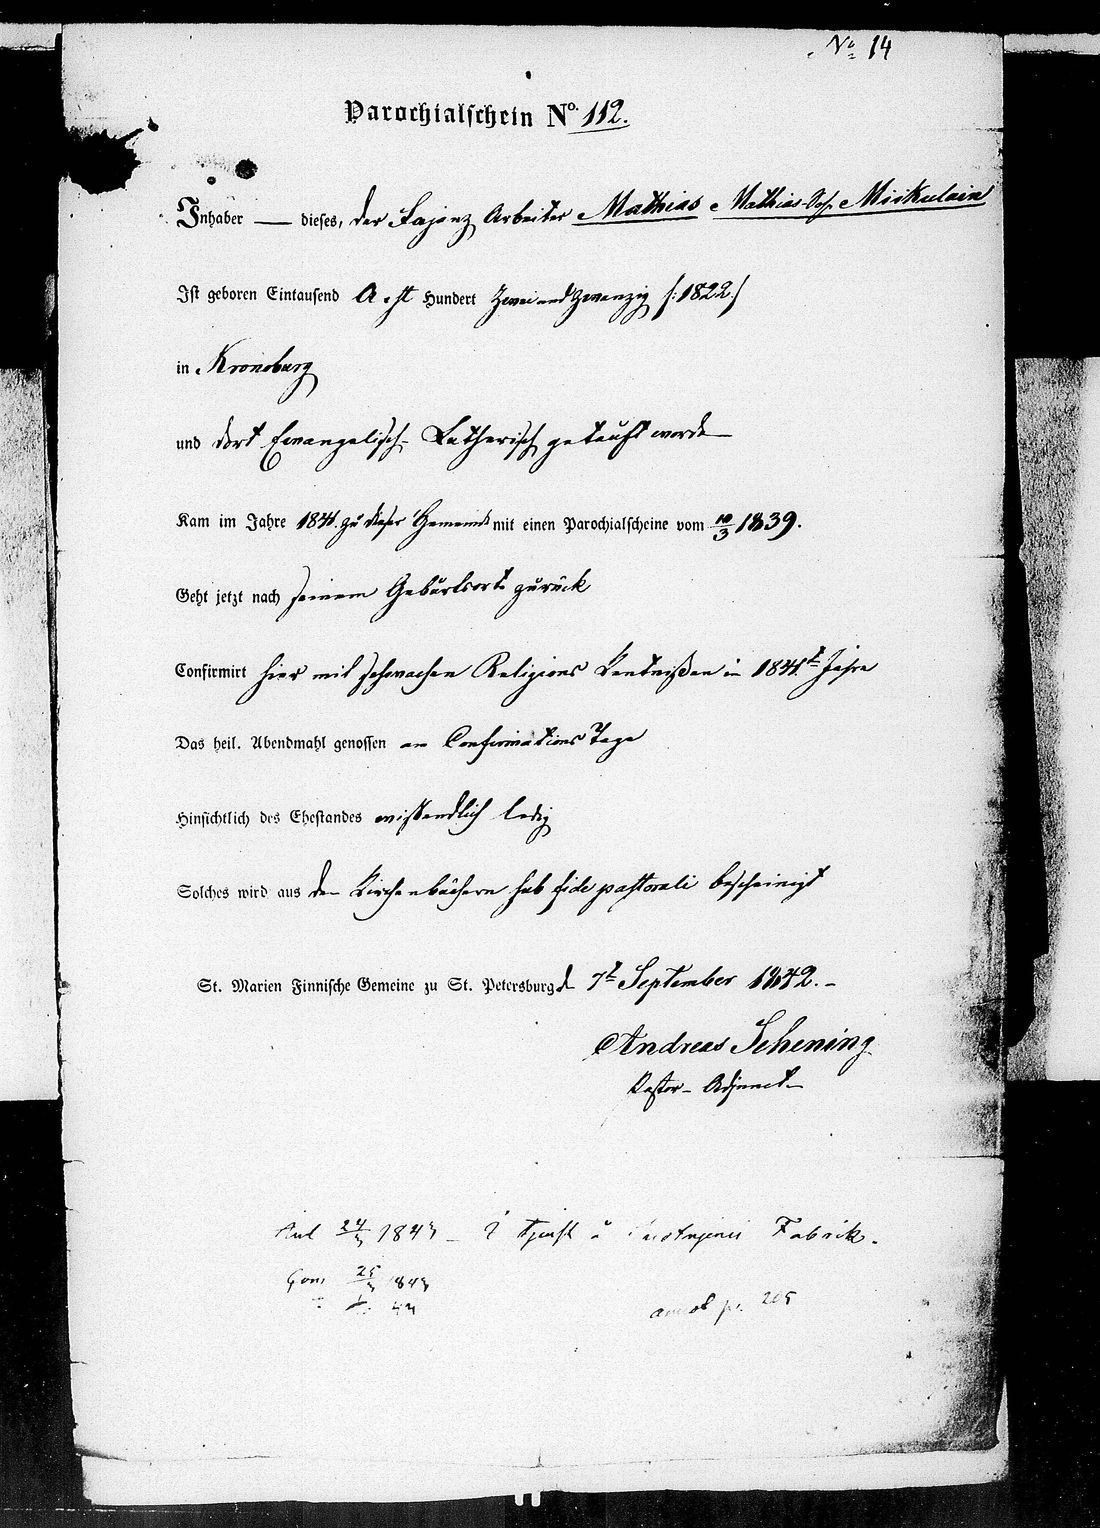 No 14
Parochialschein No. 112.
Inhaber — dieses, der Fajanz Arbeiter Mathias Mathias Soh. Miikulain
Ist geboren Eintausend Acht Hundert Zwei und Zwanzig /:1822:/
in Kronoburg
und dort Ewangelisch-Lutherisch getauft worden
Kam im Jahre 1841. zu dieser Gemeinde mit einen Parochialscheine vom 10/3 1839.
Geht jetzt nach seinem Geburtsorte zurück
Confirmirt hier mit schwachen Religions Kentnißen in 1841t Jahre
Das heil. Abendmahl genossen am Confirmations Tage
Hinsichtlich des Ehestandes wissendlich ledig
Solches wird aus den Kirchenbüchern sub fide pastorali bescheinigt
St. Marien Finnische Gemeine zu St. Petersburg d 7t September 1842.
Andreas Schening
Pastor-Adjunct
24/3 1843 – i tjenst å Fabrik.
25/3 1843
205